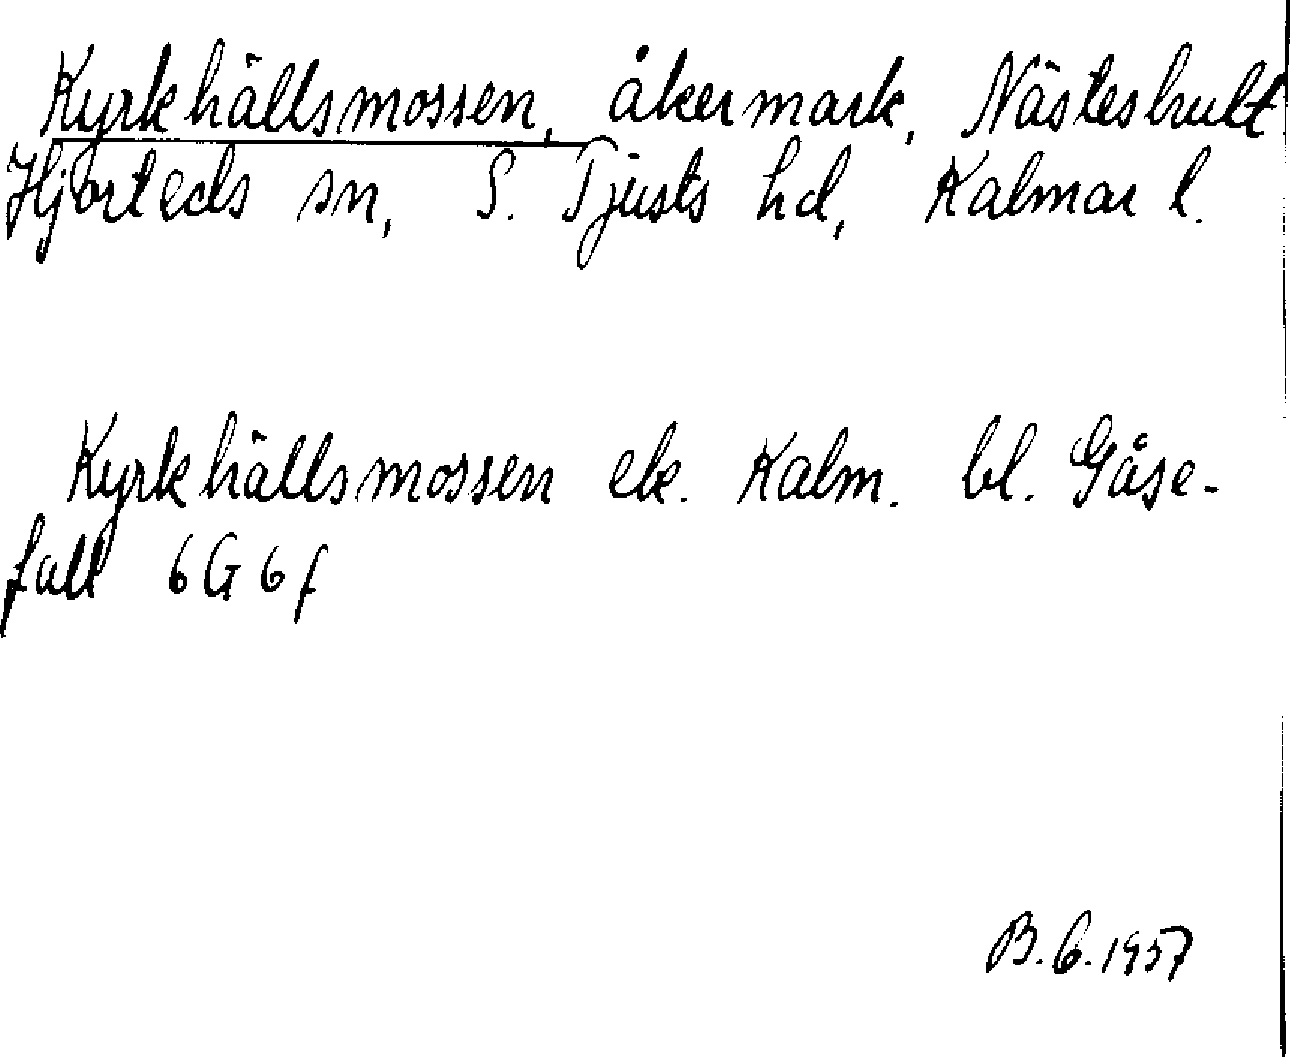 Kyrkhällsmossen, åkermark, Nästeshult
Hjorteds sn, S. Tjusts hd, Kalmar l.
Kyrkhällsmossen ek. Kalm. bl. Gåse-
fall 6G6f
B.G.1957